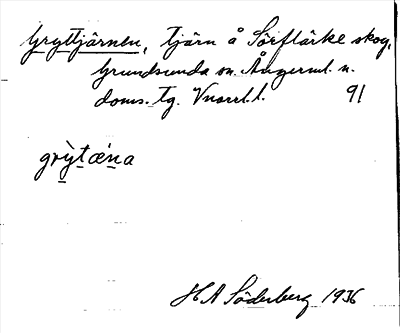 Gryttjärnen, tjärn å Sörflärke skog,
Grundsunda sn. Ångerml. n.
doms. tg. Vnorrl. l. 91
grỳtæ̀na
H A Söderberg 1936